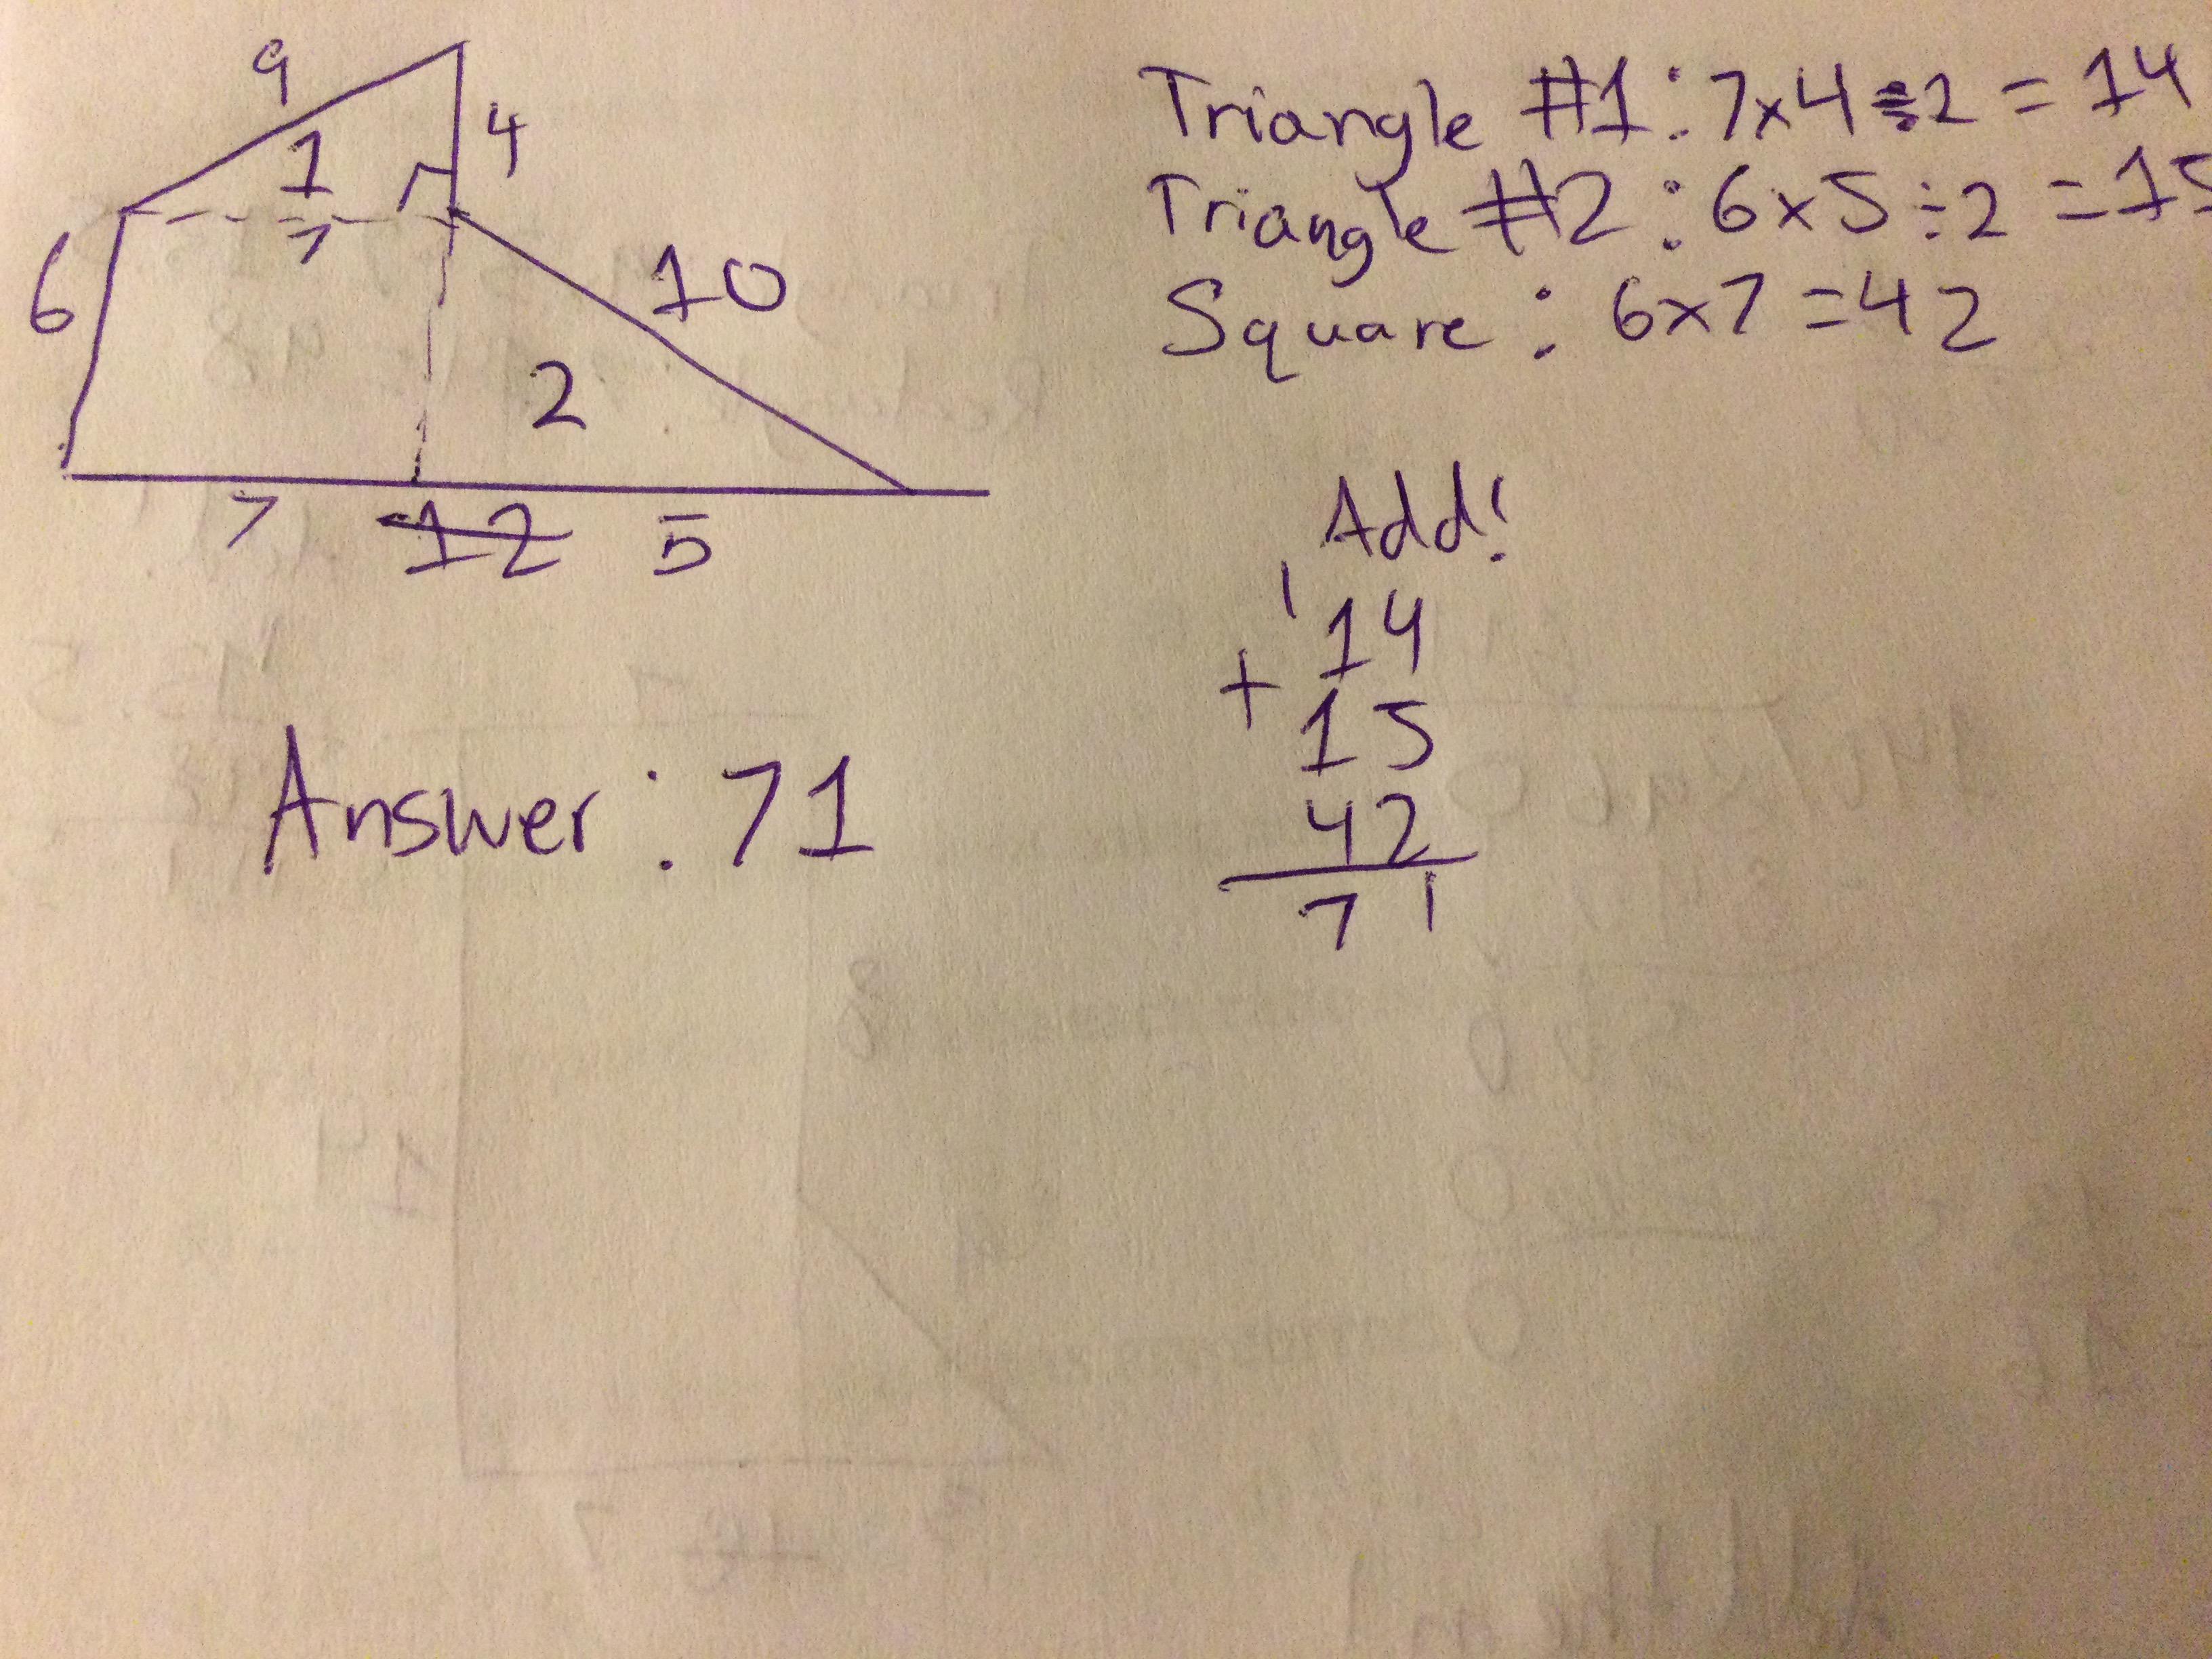 9
4
1
7
6
10
2
7 12 5
Triangle #1: 7x4÷2 = 14
Triangle #2: 6x5÷2 = 15
Square: 6x7=42
Add!
1
14
+
15
42
71
Answer: 71